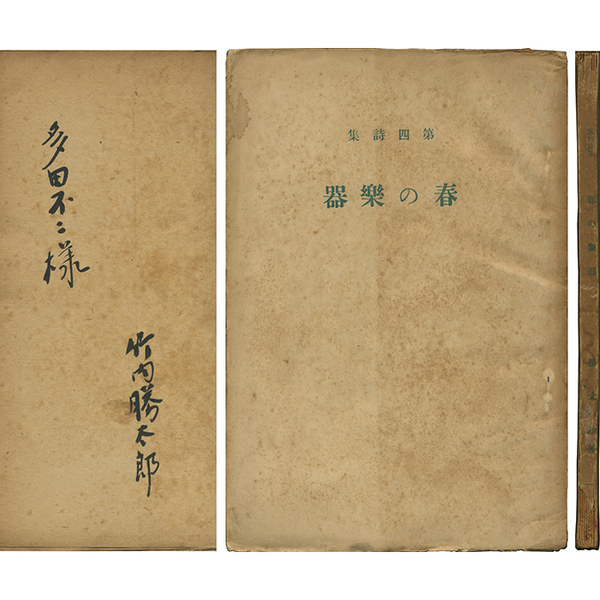 多田不二様
竹内勝太郎
第四詩集
春の樂器